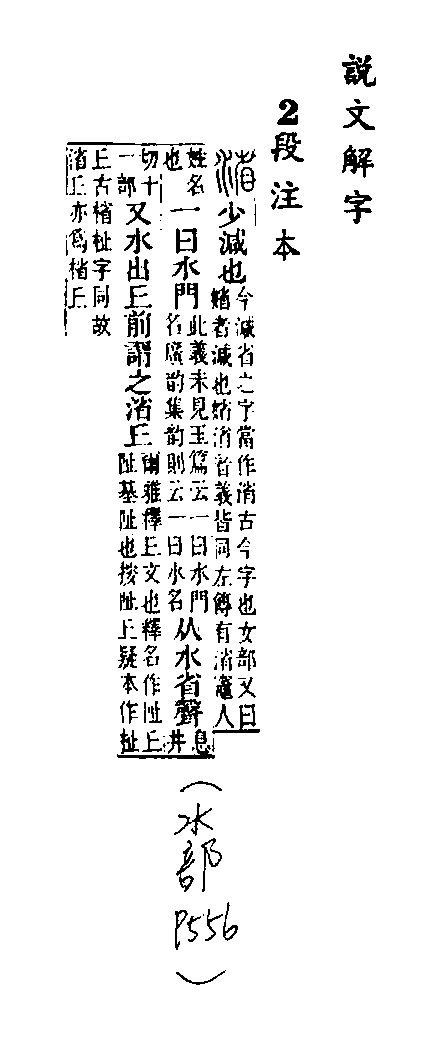 說文解字
2段注本
渻 少減也 今減省之字當作渻古今字也女部又曰
媘者減也媘渻音義皆同左傳有渻竈人
姓名
也 一曰水門 此義未見玉篇云一曰水門
名廣韵集韵則云一曰水名 从水省聲 息
井
切十
一部 又水出丘前謂之渻丘 爾雅釋丘文也釋名作阯丘
阯基阯也按阯丘疑本作沚
丘古楮沚字同故
渻丘亦爲楮丘
(水部 P556)